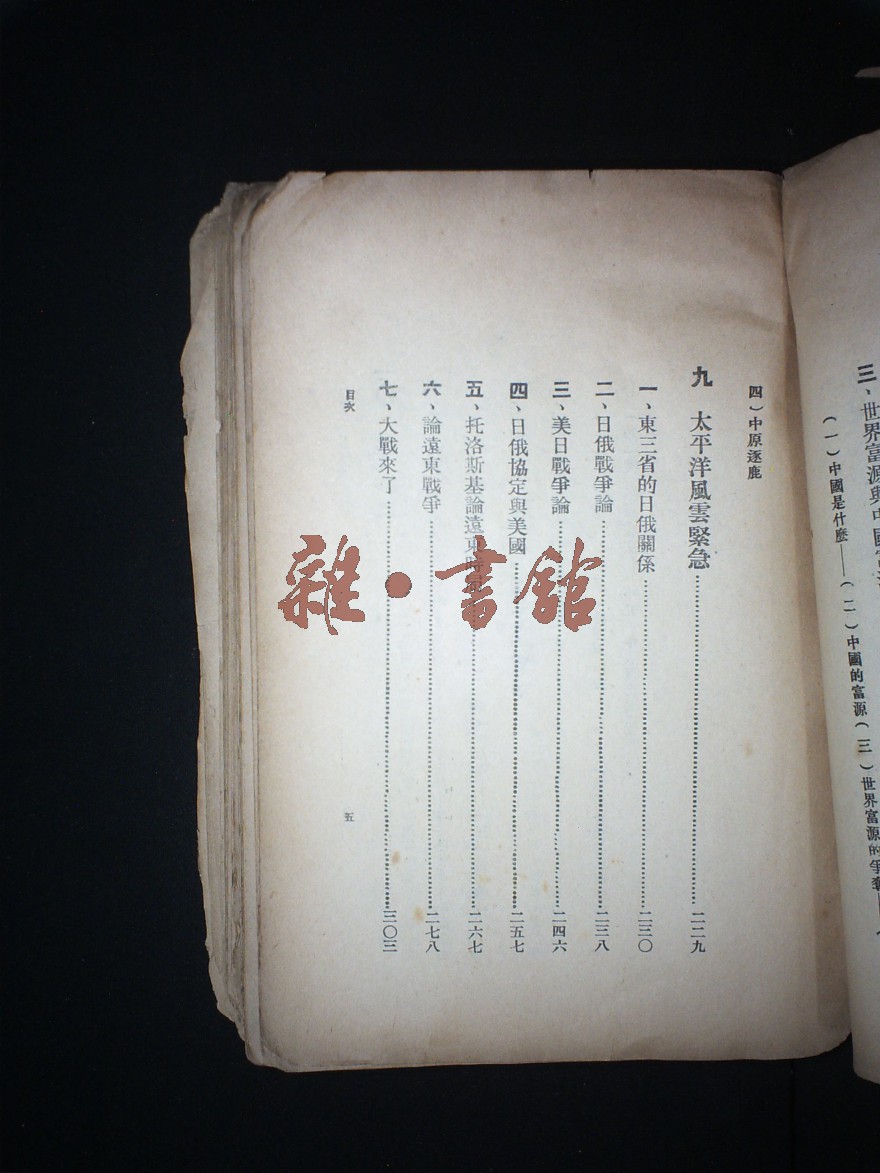 三、世界富源與中國富源
(一)中國是什麼——(二)中國的富源(三)世界富源的爭奪——
四)中原逐鹿
九 太平洋風雲緊急……二二九
一、東三省的日俄關係……二三〇
二、日俄戰爭論……二三八
三、美日戰爭論……二四六
四、日俄協定與美國……二五七
五、托洛斯基論遠東時……二六七
六、論遠東戰爭……二七八
七、大戰來了……三〇三
目次
五
雜·書館